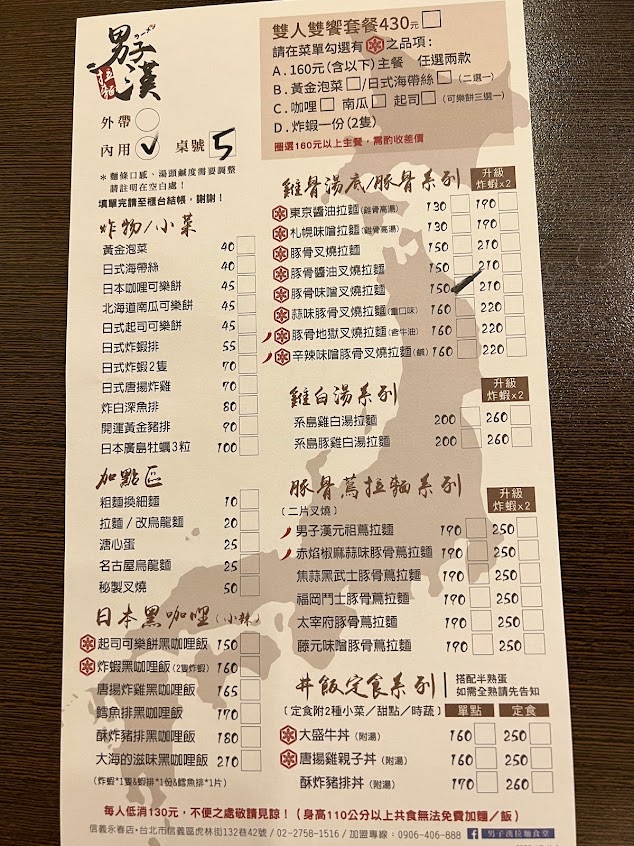 男子漢
拉麵
外帶
內用 桌號 5
＊麵條口感、湯頭鹹度需要調整
請註明在空白處！
填單完請至櫃台結帳，謝謝！
雙人雙饗套餐430元
請在菜單勾選有 之品項：
A．160元(含以下)主餐 任選兩款
B．黃金泡菜 /日式海帶絲 (二選一)
C．咖哩 南瓜 起司 (可樂餅三選一)
D．炸蝦一份(2隻)
圈選160元以上主餐，需酌收差價
炸物/小菜
黃金泡菜 40
日式海帶絲 40
日本咖哩可樂餅 45
北海道南瓜可樂餅 45
日式起司可樂餅 45
日式炸蝦排 55
日式炸蝦2隻 70
日式唐揚炸雞 70
炸白深魚排 80
開運黃金豬排 90
日本廣島牡蠣3粒 100
加點區
粗麵換細麵 10
拉麵/改烏龍麵 20
溏心蛋 25
名古屋烏龍麵 25
秘製叉燒 50
日本黑咖哩(小辣)
起司可樂餅黑咖哩飯 150
炸蝦黑咖哩飯(2隻炸蝦) 160
唐揚炸雞黑咖哩飯 165
鱈魚排黑咖哩飯 170
酥炸豬排黑咖哩飯 180
大海的滋味黑咖哩飯 210
(炸蝦*1隻&蝦排*1份&鱈魚排*1片)
雞骨湯底/豚骨系列 升級炸蝦x2
東京醬油拉麵(雞骨高湯) 130 190
札幌味噌拉麵(雞骨高湯) 130 190
豚骨叉燒拉麵 150 210
豚骨醬油叉燒拉麵 150 210
豚骨味噌叉燒拉麵 150 210
蒜味豚骨叉燒拉麵(重口味) 160 220
豚骨地獄叉燒拉麵(含牛油) 160 220
辛辣味噌豚骨叉燒拉麵(鹹) 160 220
雞白湯系列 升級炸蝦x2
系島雞白湯拉麵 200 260
系島豚雞白湯拉麵 200 260
豚骨蔦拉麵系列 升級炸蝦x2
〔二片叉燒〕
男子漢元祖蔦拉麵 190 250
赤焰椒麻蒜味豚骨蔦拉麵 190 250
焦蒜黑武士豚骨蔦拉麵 190 250
福岡鬥士豚骨蔦拉麵 190 250
太宰府豚骨蔦拉麵 190 250
藤元味噌豚骨蔦拉麵 190 250
丼飯定食系列 搭配半熟蛋
如需全熟請先告知
〔定食附2種小菜/甜點/時蔬〕 單點 定食
大盛牛丼(附湯) 160 250
唐揚雞親子丼(附湯) 160 250
酥炸豬排丼(附湯) 170 260
每人低消130元，不便之處敬請見諒！(身高110公分以上共食無法免費加麵/飯)
信義永春店・台北市信義區虎林街132巷42號 / 02-2758-1516 / 加盟專線：0906-406-888 男子漢拉麵食堂